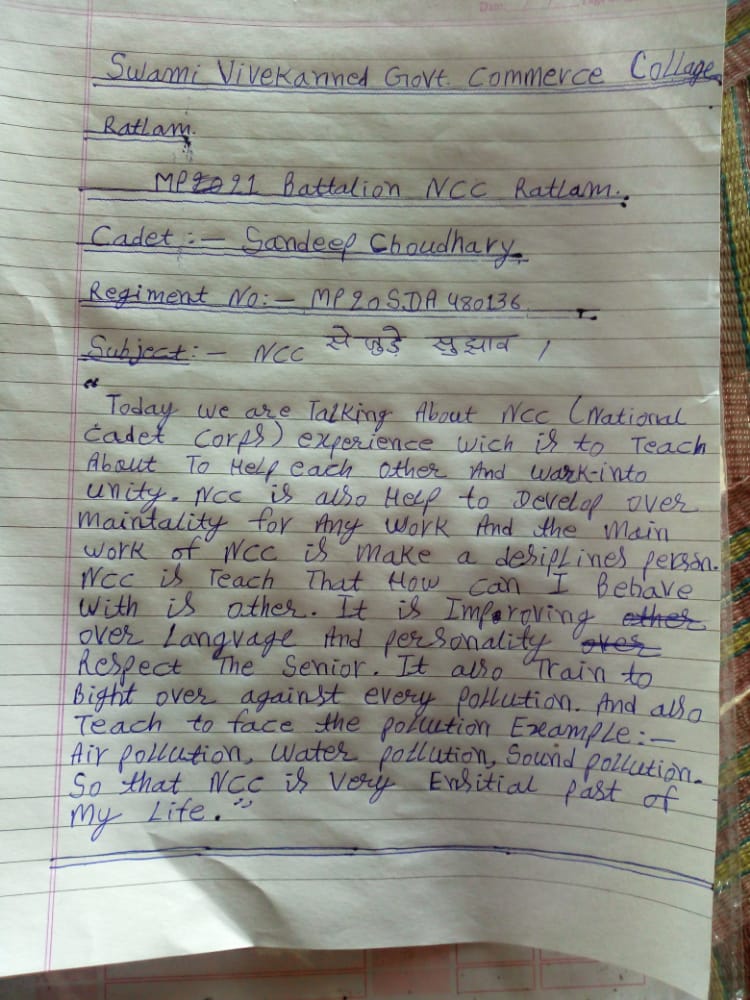 Swami Vivekanned Govt. Commerce Collage
Ratlam.
MP 21 Battalion NCC Ratlam.
Cadet :- Sandeep Choudhary
Regiment No:- MP20SDA480136
Subject:- NCC से जुड़े सुझाव ।
"Today we are Talking About NCC (National
Cadet Corps) experience wich is to Teach
About To Help each other And work-into
unity. NCC is also Help to Develop over
maintality for Any work And the main
work of NCC is make a desiplines person.
NCC is Teach That How can I Behave
with is other. It is Improving other
over Language And personality over
Respect The Senior. It also Train to
Bight over against every pollution. And also
Teach to face the pollution Example:-
Air pollution, Water pollution, Sound pollution.
So that NCC is Very Ensitial past of
My Life."